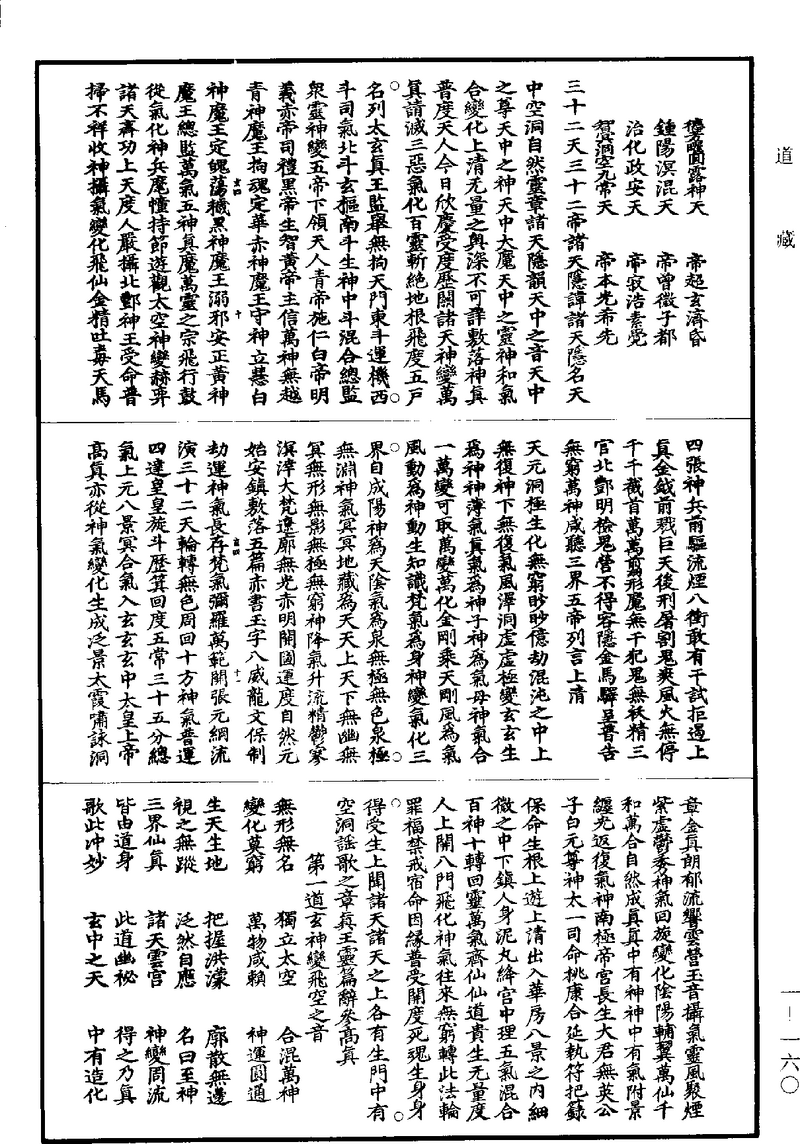 道藏
瓊臺圓露神天　帝超玄濟昏
鍾陽溟混天　帝曾微子都
治化政安天　帝寂浩素覺
賀洞空九常天　帝本光希先
三十二天三十二帝諸天隱諱諸天隱名天
中空洞自然靈章諸天隱韻天中之音天中
之尊天中之神天中大魔天中之靈神和氣
合變化上清无量之奧深不可詳敷落神真
普度天人今日欣慶受度歷關諸天神變萬
真請滅三惡氣化百靈斬絕地根飛度五戶
名列太玄真王監舉無拘天門東斗運機西
斗司氣北斗玄樞南斗生神中斗混合總監
衆靈神變五帝下領天人青帝施仁白帝明
義赤帝司禮黑帝生智黃帝主信萬神無越
青神魔王拘魂定華赤神魔王守神立慧白
神魔王定魄蕩穢黑神魔王溺邪安正黃神
魔王總監萬氣五神真魔萬靈之宗飛行鼓
從氣化神兵魔幢持節遊觀太空神變赫奕
諸天齊功上天度人嚴攝北酆神王受命普
掃不祥收神攝氣變化飛仙金精吐毒天馬
四張神兵前驅流煙八衝敢有干試拒遏上
真金鉞前戮巨天後刑屠割鬼爽風火無停
千千截首萬萬剪形魔無干犯鬼無袄精三
官北酆明檢鬼營不得容隱金馬驛呈普告
無窮萬神咸聽三界五帝列言上清
天元洞極生化無窮眇眇億劫混沌之中上
無復神下無復氣風澤洞虛虛極變玄玄生
爲神神溥氣真氣爲神子神爲氣母神氣合
一萬變可取萬變萬化金剛乘天剛風爲氣
風動爲神動生知識梵氣爲身神變氣化三
界自成陽神爲天陰氣爲泉無極無色泉極
無淵神氣冥冥地藏爲天天上天下無幽無
冥無形無影無極無窮神降氣升流精鬱寥
溟涬大梵遼廓無光赤明開圖運度自然元
始安鎮敷落五篇赤書玉字八威龍文保制
劫運神氣長存梵氣彌羅萬範開張元綱流
演三十二天輪轉無色周回十方神氣普運
四達皇皇旋斗歷箕回度五常三十五分總
氣上元八景冥合氣入玄玄玄中太皇上帝
高真亦從神氣變化生成泛景太霞嘯詠洞
章金真朗郁流響雲營玉音攝氣靈風聚煙
紫虛鬱秀神氣回旋變化陰陽輔翼萬仙千
和萬合自然成真真中有神神中有氣附景
纏光返復氣神南極帝宮長生大君無英公
子白元尊神太一司命桃康合延執符把籙
保命生根上遊上清出入華房八景之內細
微之中下鎮人身泥丸絳宮中理五氣混合
百神十轉回靈萬氣齊仙仙道貴生无量度
人上開八門飛化神氣往來無窮轉此法輪
罪福禁戒宿命因緣普受開度死魂生身身
得受生上聞諸天諸天之上各有生門中有
空洞謠歌之章真王靈篇辭參高真
第一道玄神變飛空之音
無形無名　獨立太空　合混萬神
變化莫窮　萬物咸賴　神運圓通
生天生地　把握洪濛　廓散無邊
視之無蹤　泛然自應　名曰至神
三界仙真　諸天雲宮　神變周流
皆由道身　此道幽祕　得之乃真
歌此冲妙　玄中之天　中有造化
一－一六〇